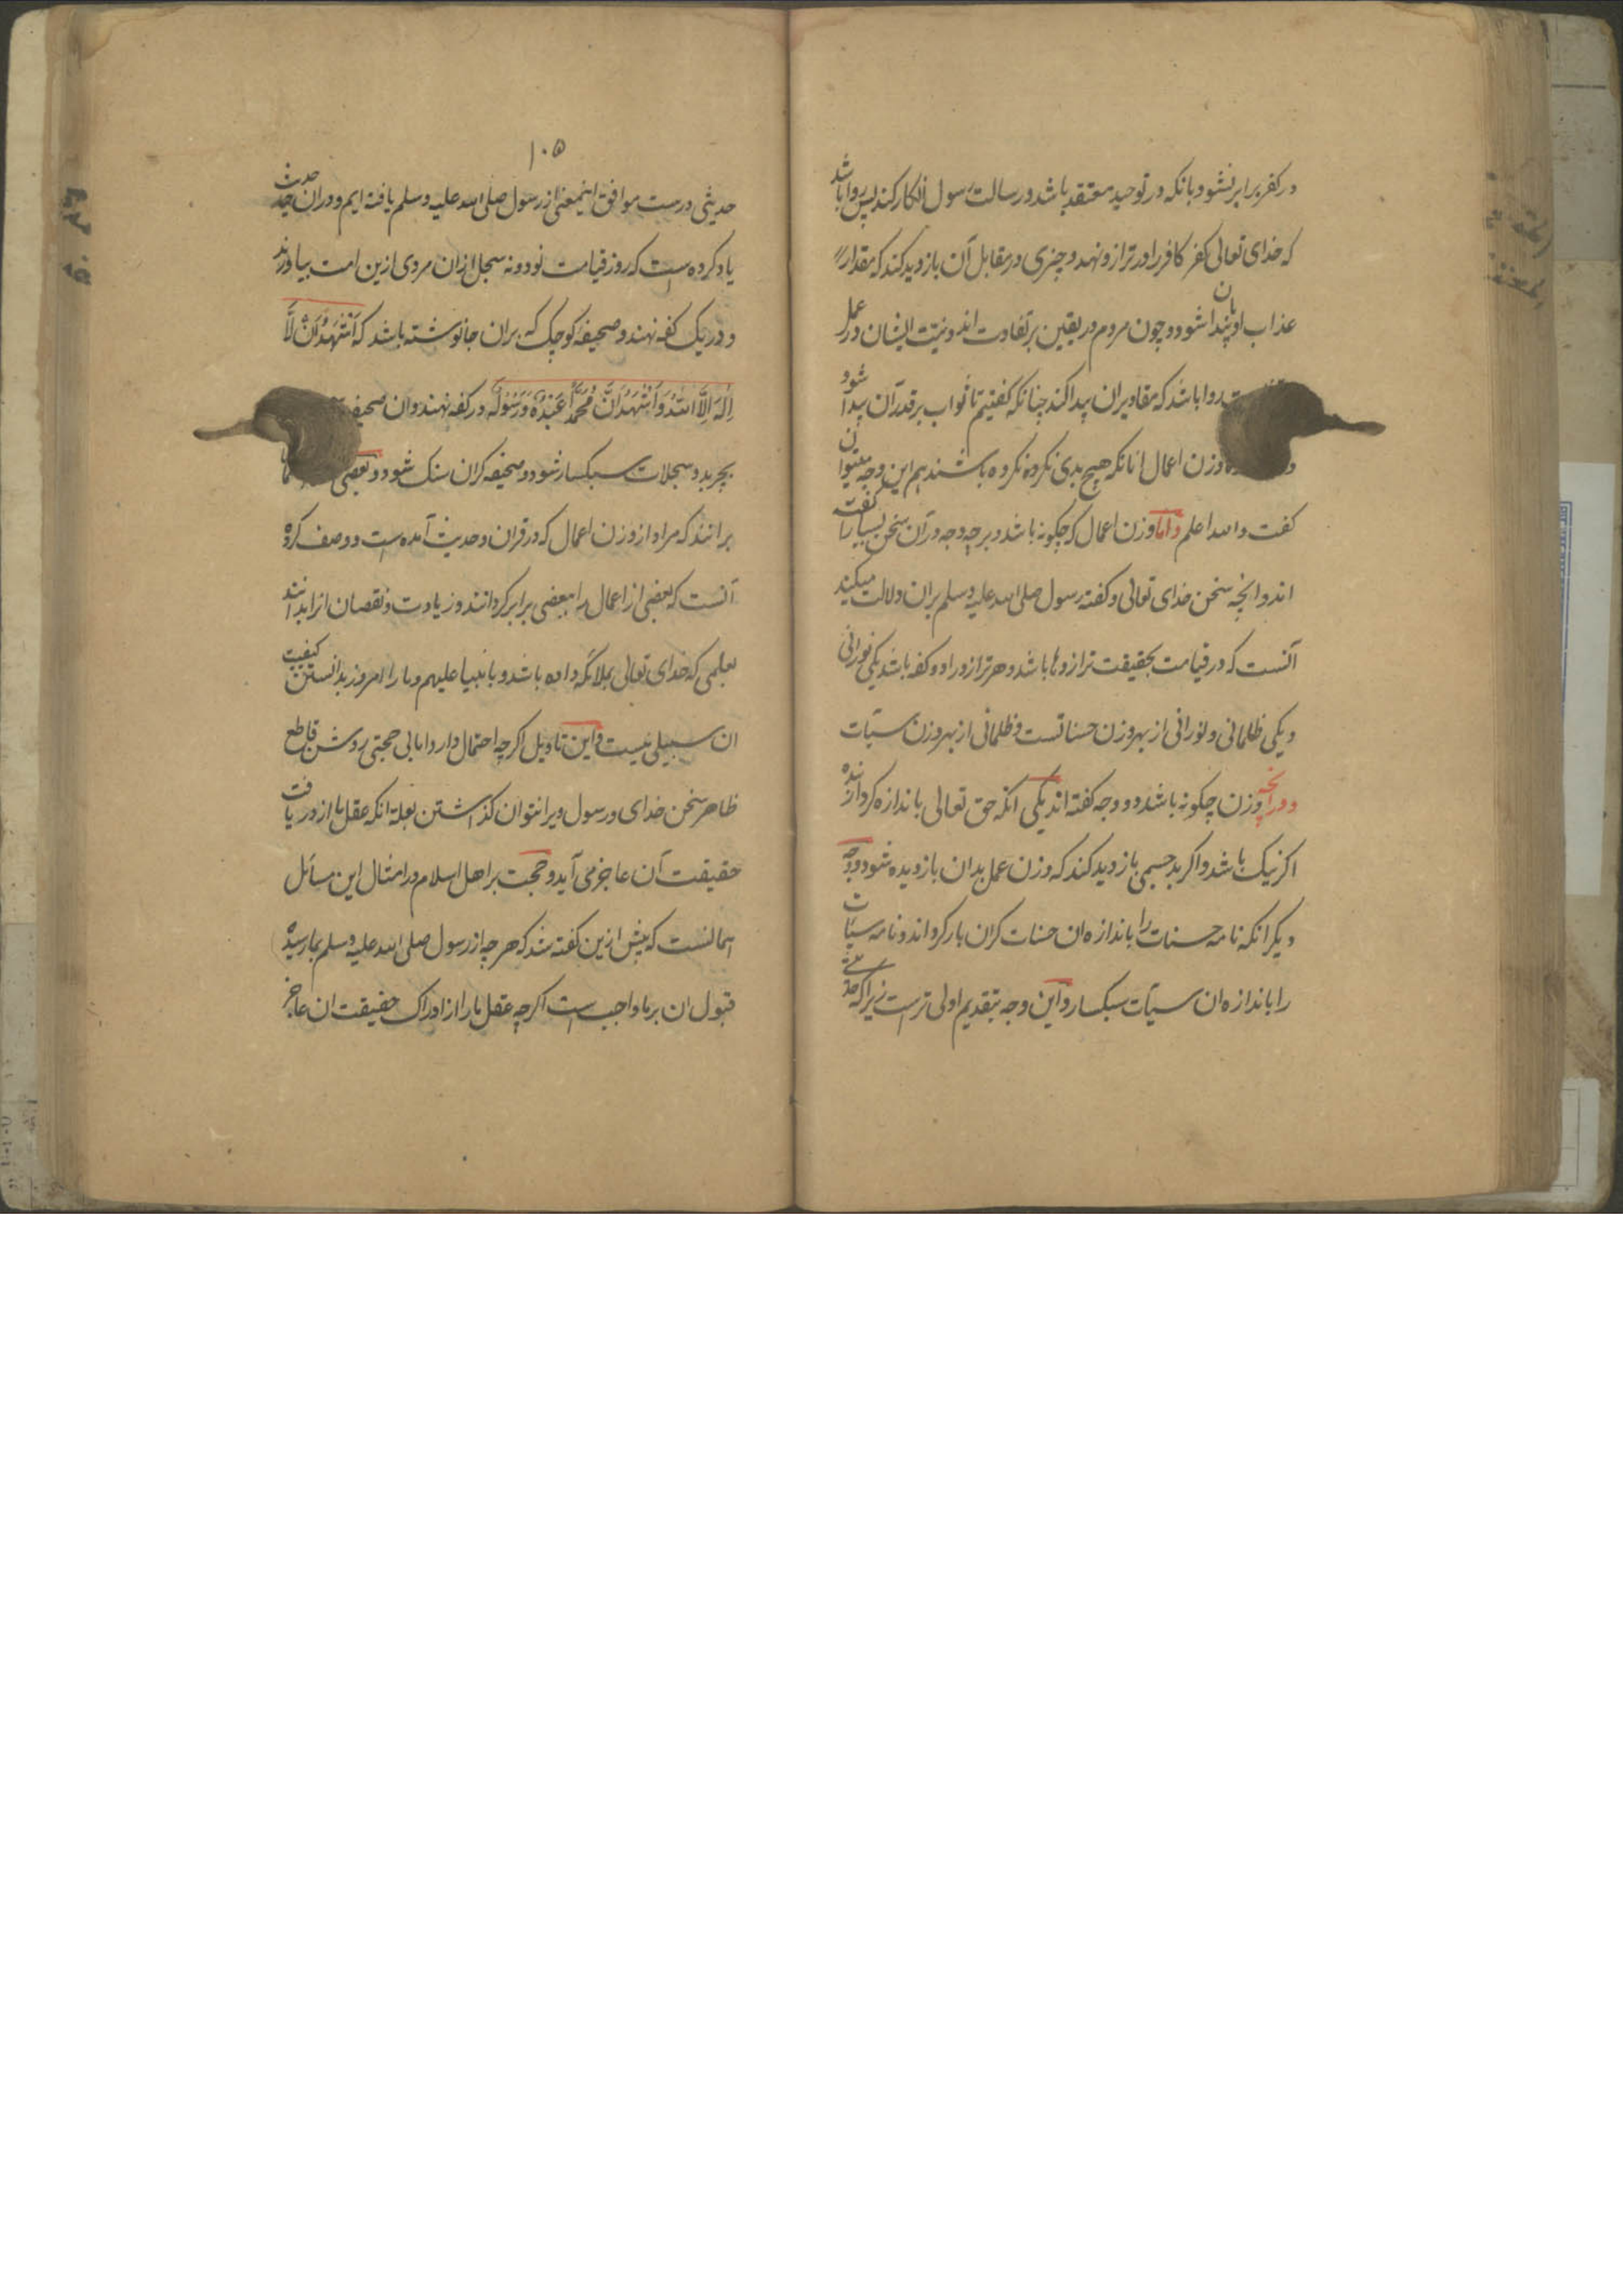 در کفر برابر نشود بانکه در توحید معتقد باشد و رسالت رسول انکار کند پس روا باشد
که خدای تعالی کفر کافر را در ترازو نهد و چیزی در مقابل آن بازدید کند که مقدار
عذاب او بدان پیدا شود و چون مردم در یقین بر تفاوت اند و نیت ایشان در عمل
روا باشد که مقادیر ان پیدا کند چنانکه کفتیم تا ثواب بر قدر آن پیدا شود
وزن اعمال انانکه هیچ بدی نکرده نکرده باشند هم این وجه میتوان
کفت والله اعلم واما وزن اعمال که چکونه باشد و بر چه وجه در آن سخن بسیار کفته
اند و انچه سخن خدای تعالی و کفته رسول صلی الله علیه وسلم بران دلالت میکند
آنست که در قیامت بحقیقت ترازوها باشد و هر ترازو را دو کفه باشد یکی نورانی
و یکی ظلمانی و نورانی از بهر وزن حسناتست و ظلمانی از بهر وزن سیّآت
و در انچه وزن چکونه باشد دو وجه کفته اند یکی انکه حق تعالی باندازه کردار بنده
اکر نیک باشد و اکر بد جسمی بازدید کند که وزن عمل بدان بازدیده شود و وجه
دیکر انکه نامه حسنات را باندازه ان حسنات کران بار کرداند و نامه سیّآت
را باندازه ان سیّآت سبکسار و این وجه بتقدیم اولی ترست زیرا که
۱۰۵
حدیثی درست موافق اینمعنی از رسول صلی الله علیه وسلم یافته ایم و در ان حدیث
یاد کرده است که روز قیامت نود و نه سجل از ان مردی ازین امت بیاورند
و در یک کفه نهند و صحیفۀ کوچک که بران جا نوشته باشد که اَشْهَدُ اَنْ لَّا
اِلٰهَ اِلَّا اللهُ وَ اَشْهَدُ اَنَّ مُحَمَّدًا عَبْدُهٗ وَرَسُوْلُهٗ در کفه نهند و ان صحیفه
بچربد و سجلات سبکسار شود و صحیفه کران سنک شود و بعضی
برانند که مراد از وزن اعمال که در قران و حدیث آمده است و وصف کرده
آنست که بعضی از اعمال را ببعضی برابر کردانند و زیادت و نقصان انرا بدانند
بعلمی که خدای تعالی بملائکه داده باشد و بانبیا علیهم و ما را امروز بدانستن کیفیت
ان سبیلی نیست و این تاویل اکرچه احتمال دارد اما بی حجتی روشن قاطع
ظاهر سخن خدای و رسول ویرا نتوان کذاشتن بعلة انکه عقل ما از دریافت
حقیقت آن عاجز می آید و حجت بر اهل اسلام در امثال این مسائل
همانست که پیش ازین کفته شد که هر چه از رسول صلی الله علیه وسلم بما رسیده
قبول ان بر ما واجب است اکرچه عقل ما را از ادراک حقیقت ان عاجز